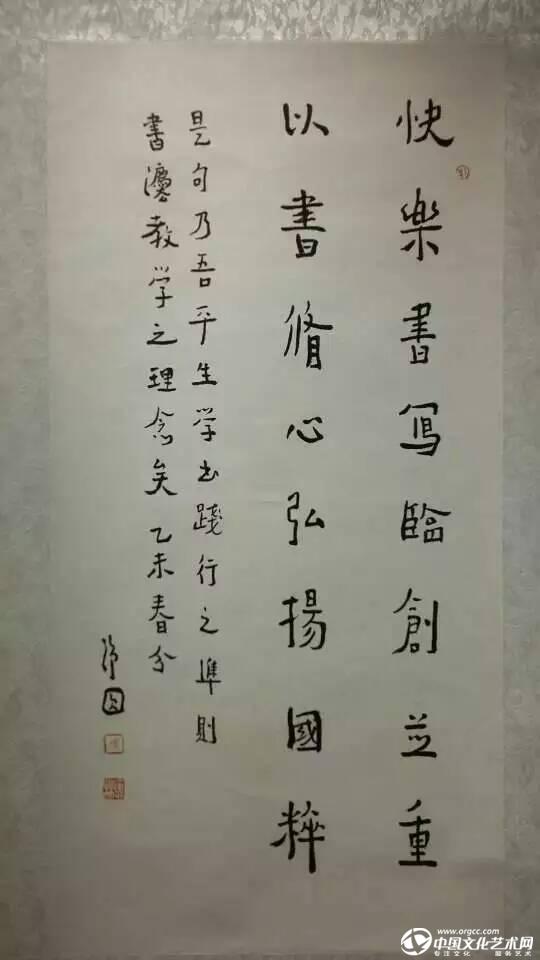 快樂書寫臨創並重
以書脩心弘揚國粹
是句乃吾平生学书踐行之準則
書灋教学之理念矣乙未春分
www.orgcc.com
中国文化艺术网
专注文化 服务艺术